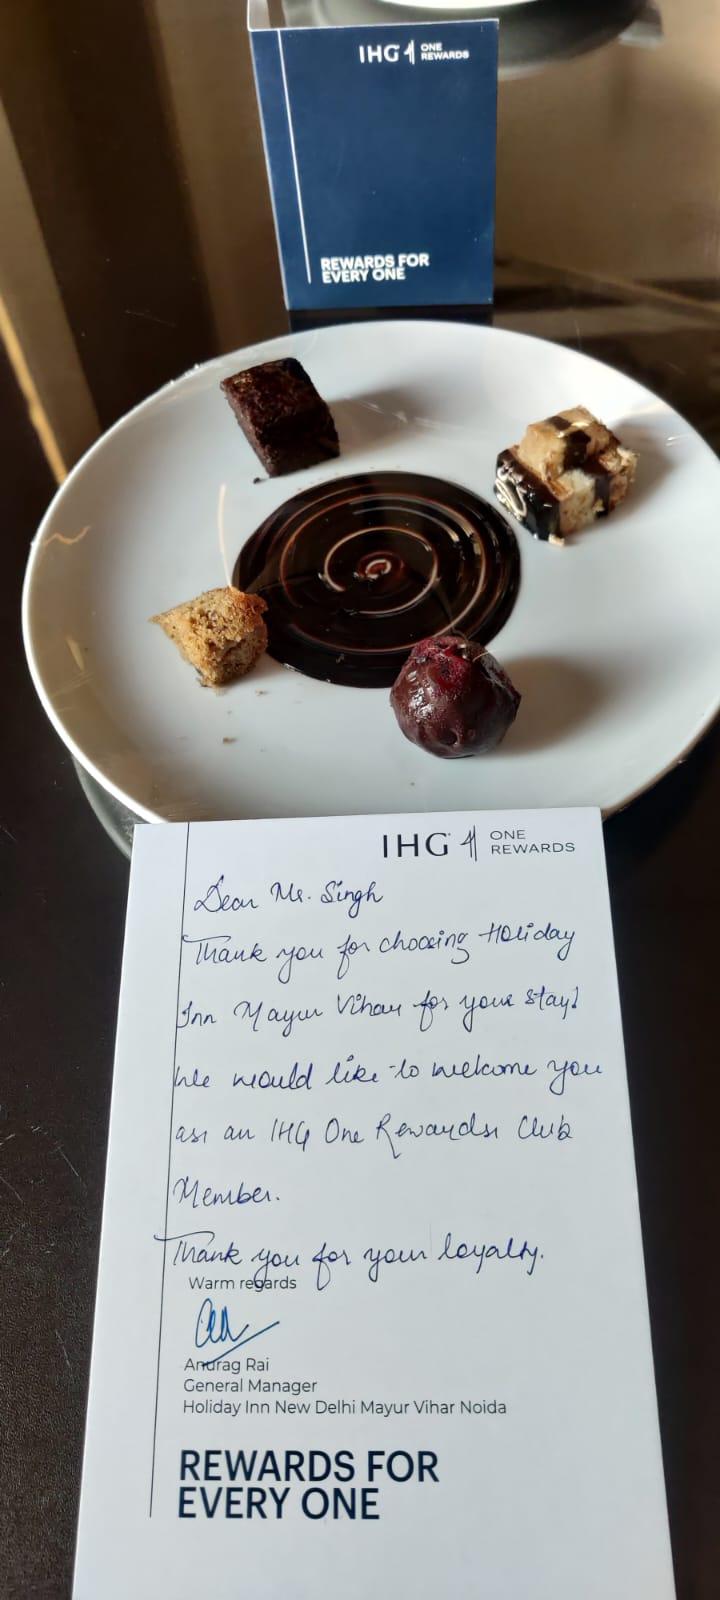 IHG ONE REWARDS
REWARDS FOR
EVERY ONE
IHG ONE REWARDS
Dear Mr. Singh
Thank you for choosing Holiday
Inn Mayur Vihar for your stay!
We would like to welcome you
as an IHG One Rewards Club
Member.
Thank you for your loyalty.
Warm regards
Anurag Rai
General Manager
Holiday Inn New Delhi Mayur Vihar Noida
REWARDS FOR
EVERY ONE